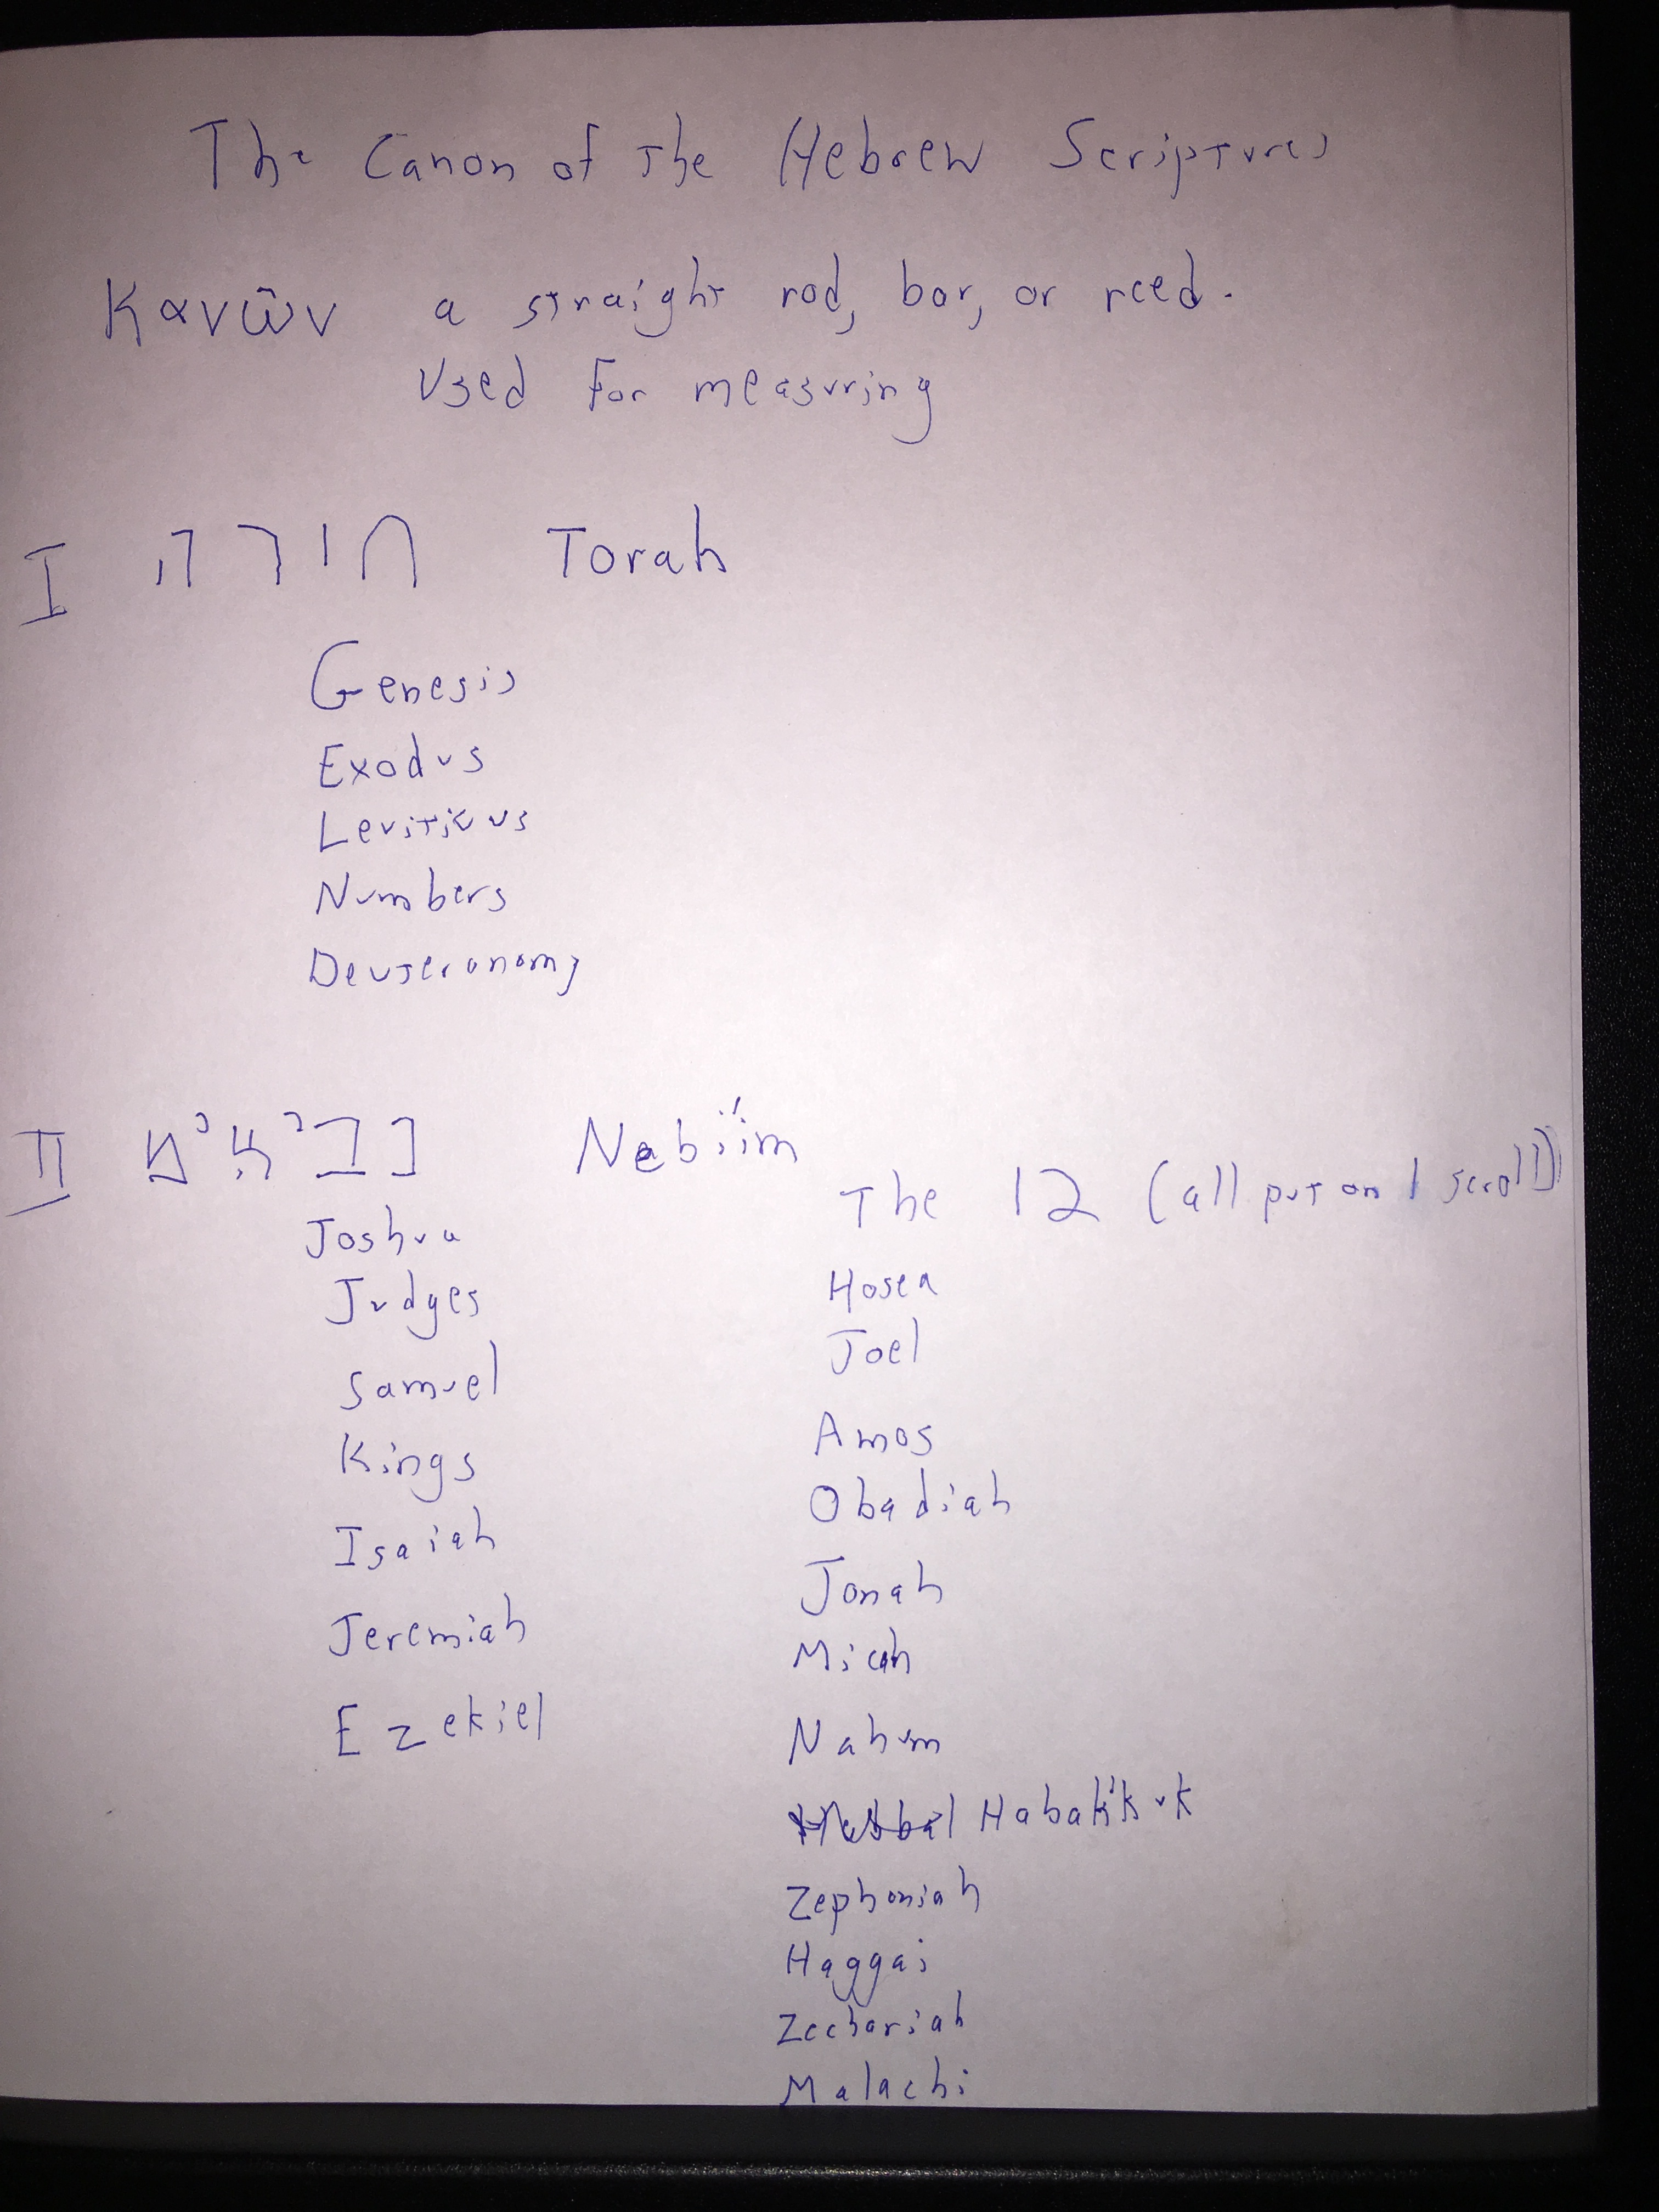 The Canon of The Hebrew Scriptures
Κανω̃ν a straight rod, bar, or reed.
Used For measuring
I תורה Torah
Genesis
Exodus
Leviticus
Numbers
Deuteronomy
II נביאים Nebiim
Joshua
Judges
Samuel
Kings
Isaiah
Jeremiah
Ezekiel
The 12 (all put on 1 scroll)
Hosea
Joel
Amos
Obadiah
Jonah
Micah
Nahum
Habakkuk
Zephoniah
Haggai
Zechariah
Malachi